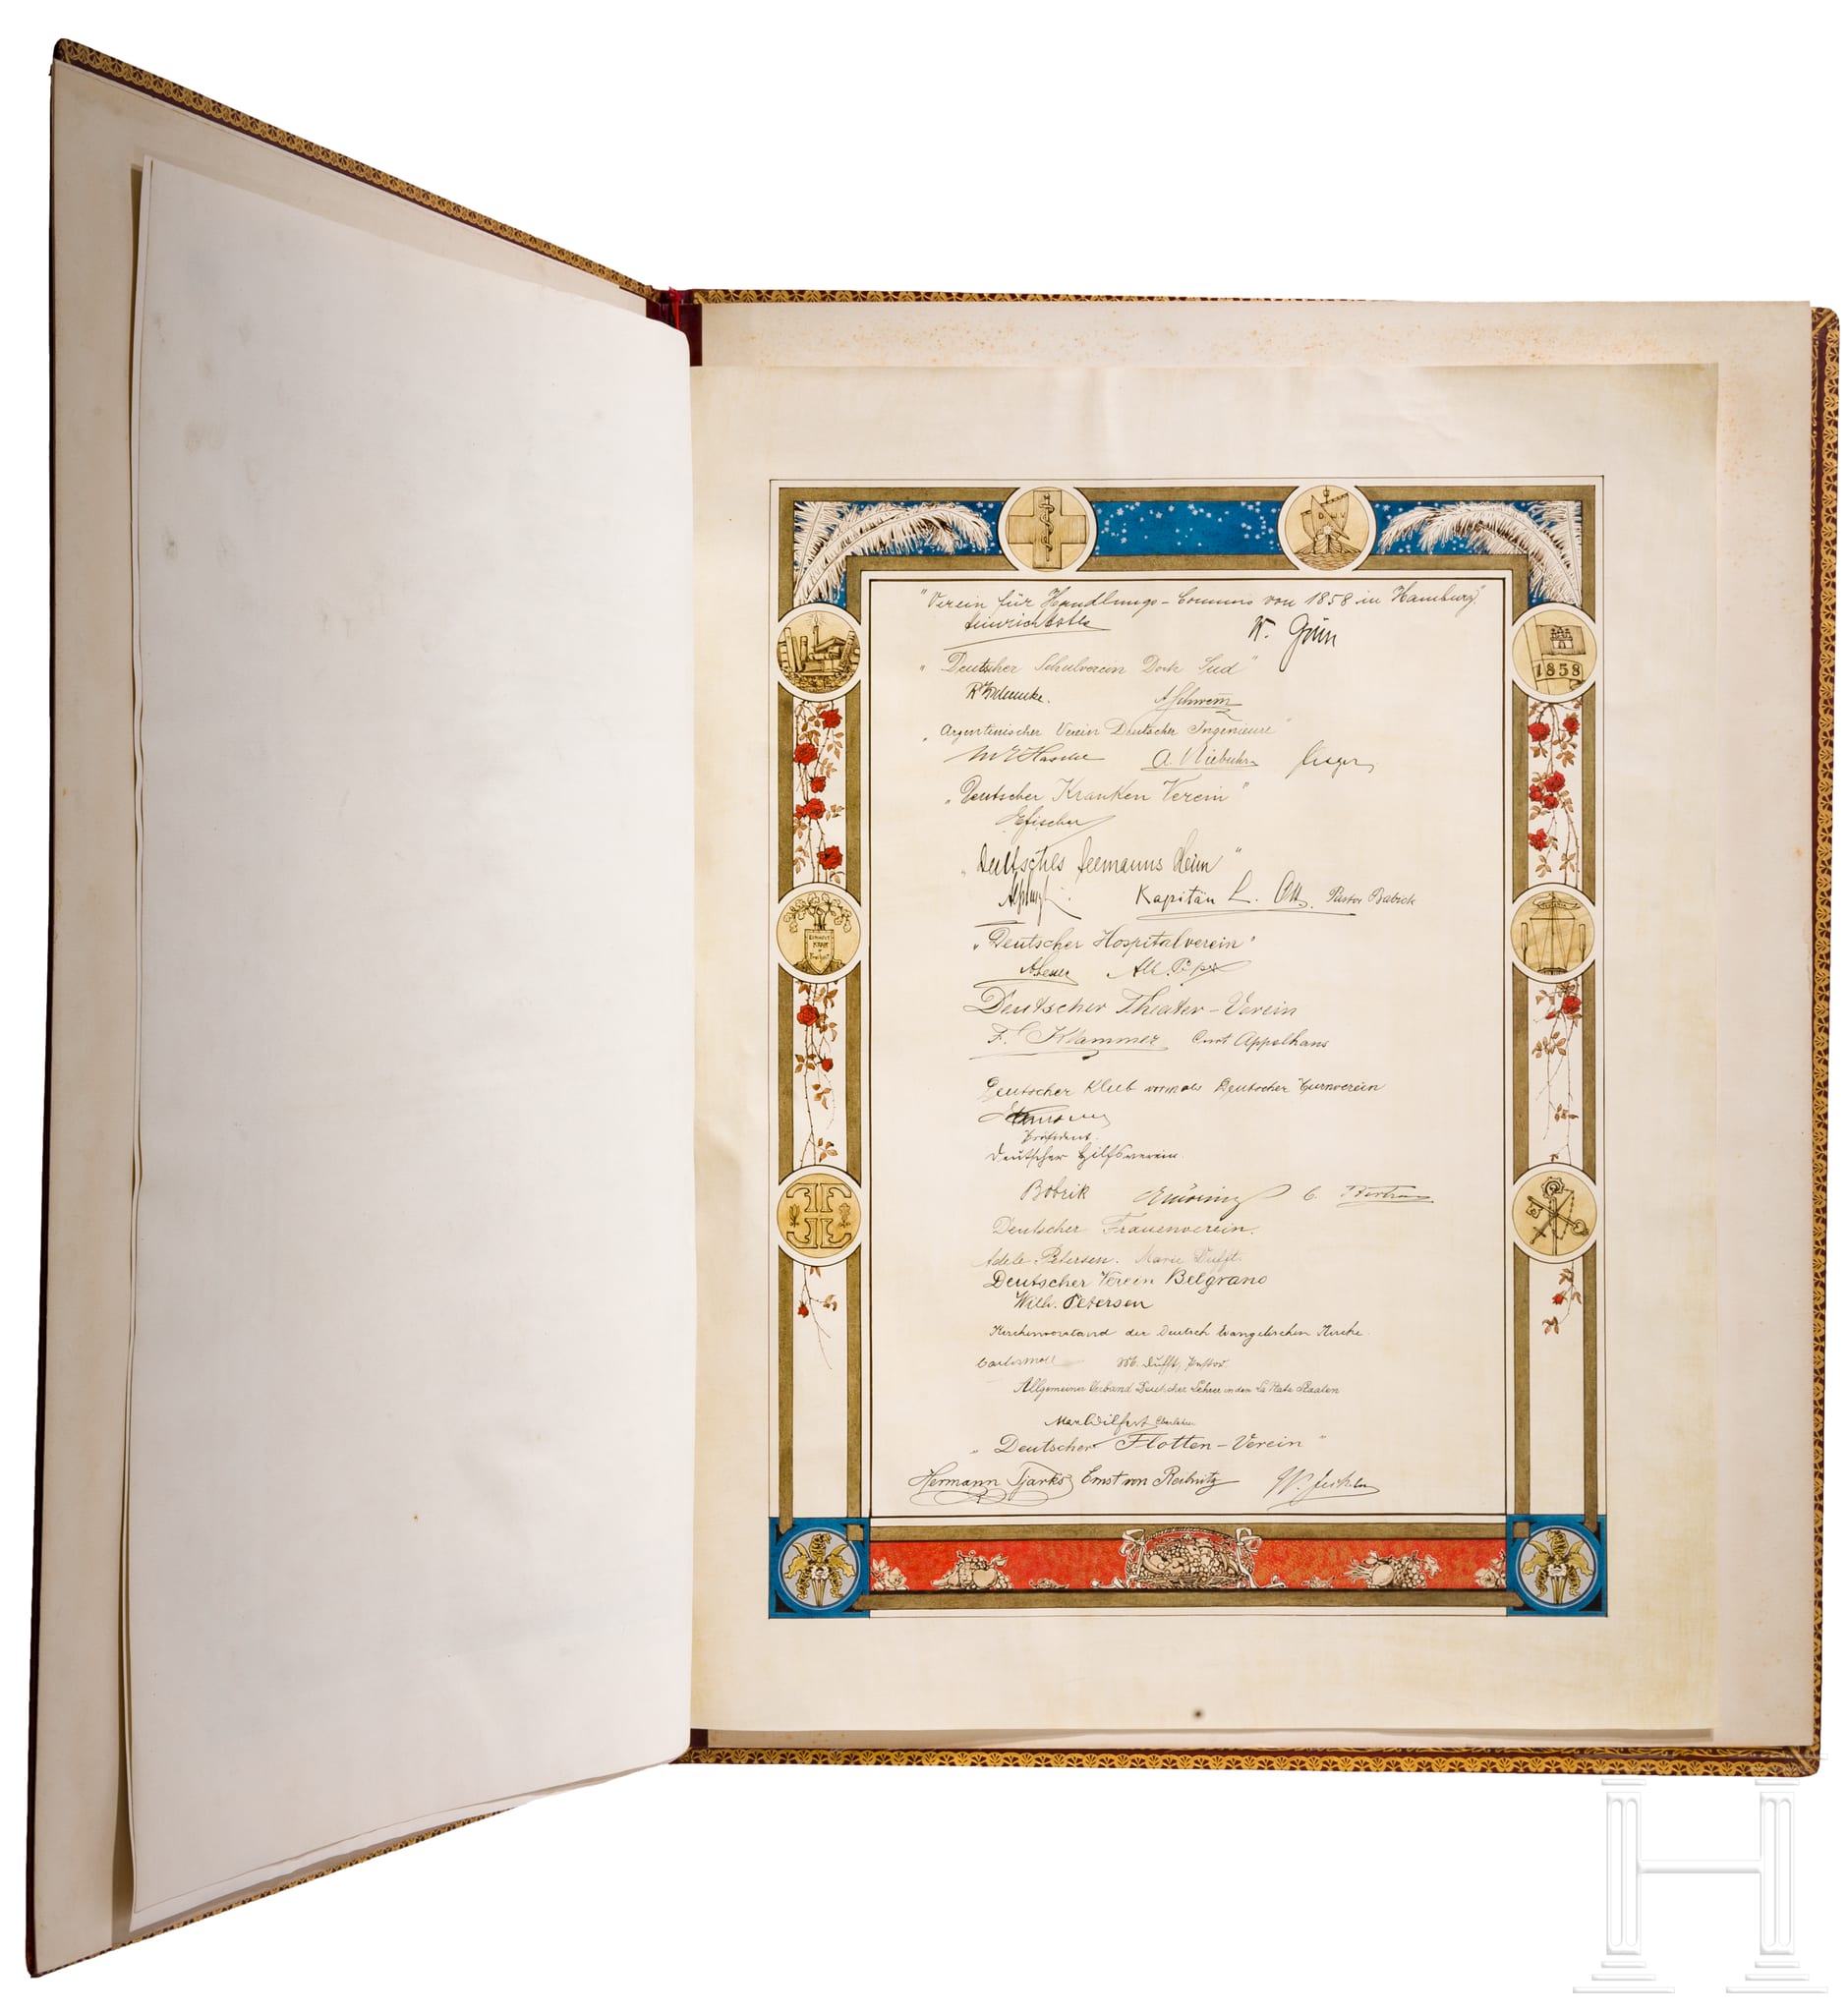 "Verein für Handlungs-Commis von 1858 in Hamburg".
W. Grün
1858
"Deutscher Schulverein Dock Sud"
"Argentinischer Verein Deutscher Ingenieure"
A. Niebuhr
"Deutscher Kranken Verein"
EFischer
"Deutsches Seemanns Heim"
Kapitän L. Ott. Pastor Babick
"Deutscher Hospitalverein"
Deutscher Theater-Verein
F. Klammer Curt Appelhans
Deutscher Klub vormals Deutscher Turnverein
Präsident.
Deutscher Hilfsverein.
Bobrik
Deutscher Frauenverein.
Adele Petersen. Marie Dufft.
Deutscher Verein Belgrano
Wilh. Petersen
Kirchenvorstand der Deutsch Evangelischen Kirche.
Dufft, Pastor.
Allgemeiner Verband Deutscher Lehrer in den La Plata Staaten
Max Wilfert
"Deutscher Flotten-Verein"
Hermann Tjarks Ernst von Reibnitz
H